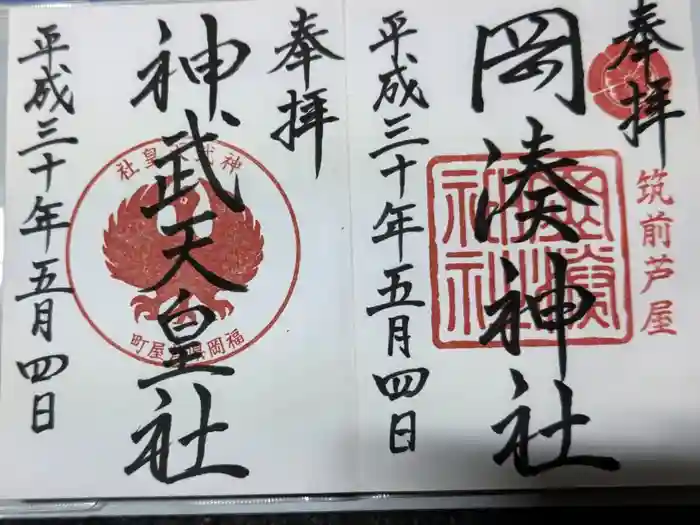 奉拝
筑前芦屋
岡湊神社
平成三十年五月四日
奉拝
神武天皇社
神武天皇社
平成三十年五月四日